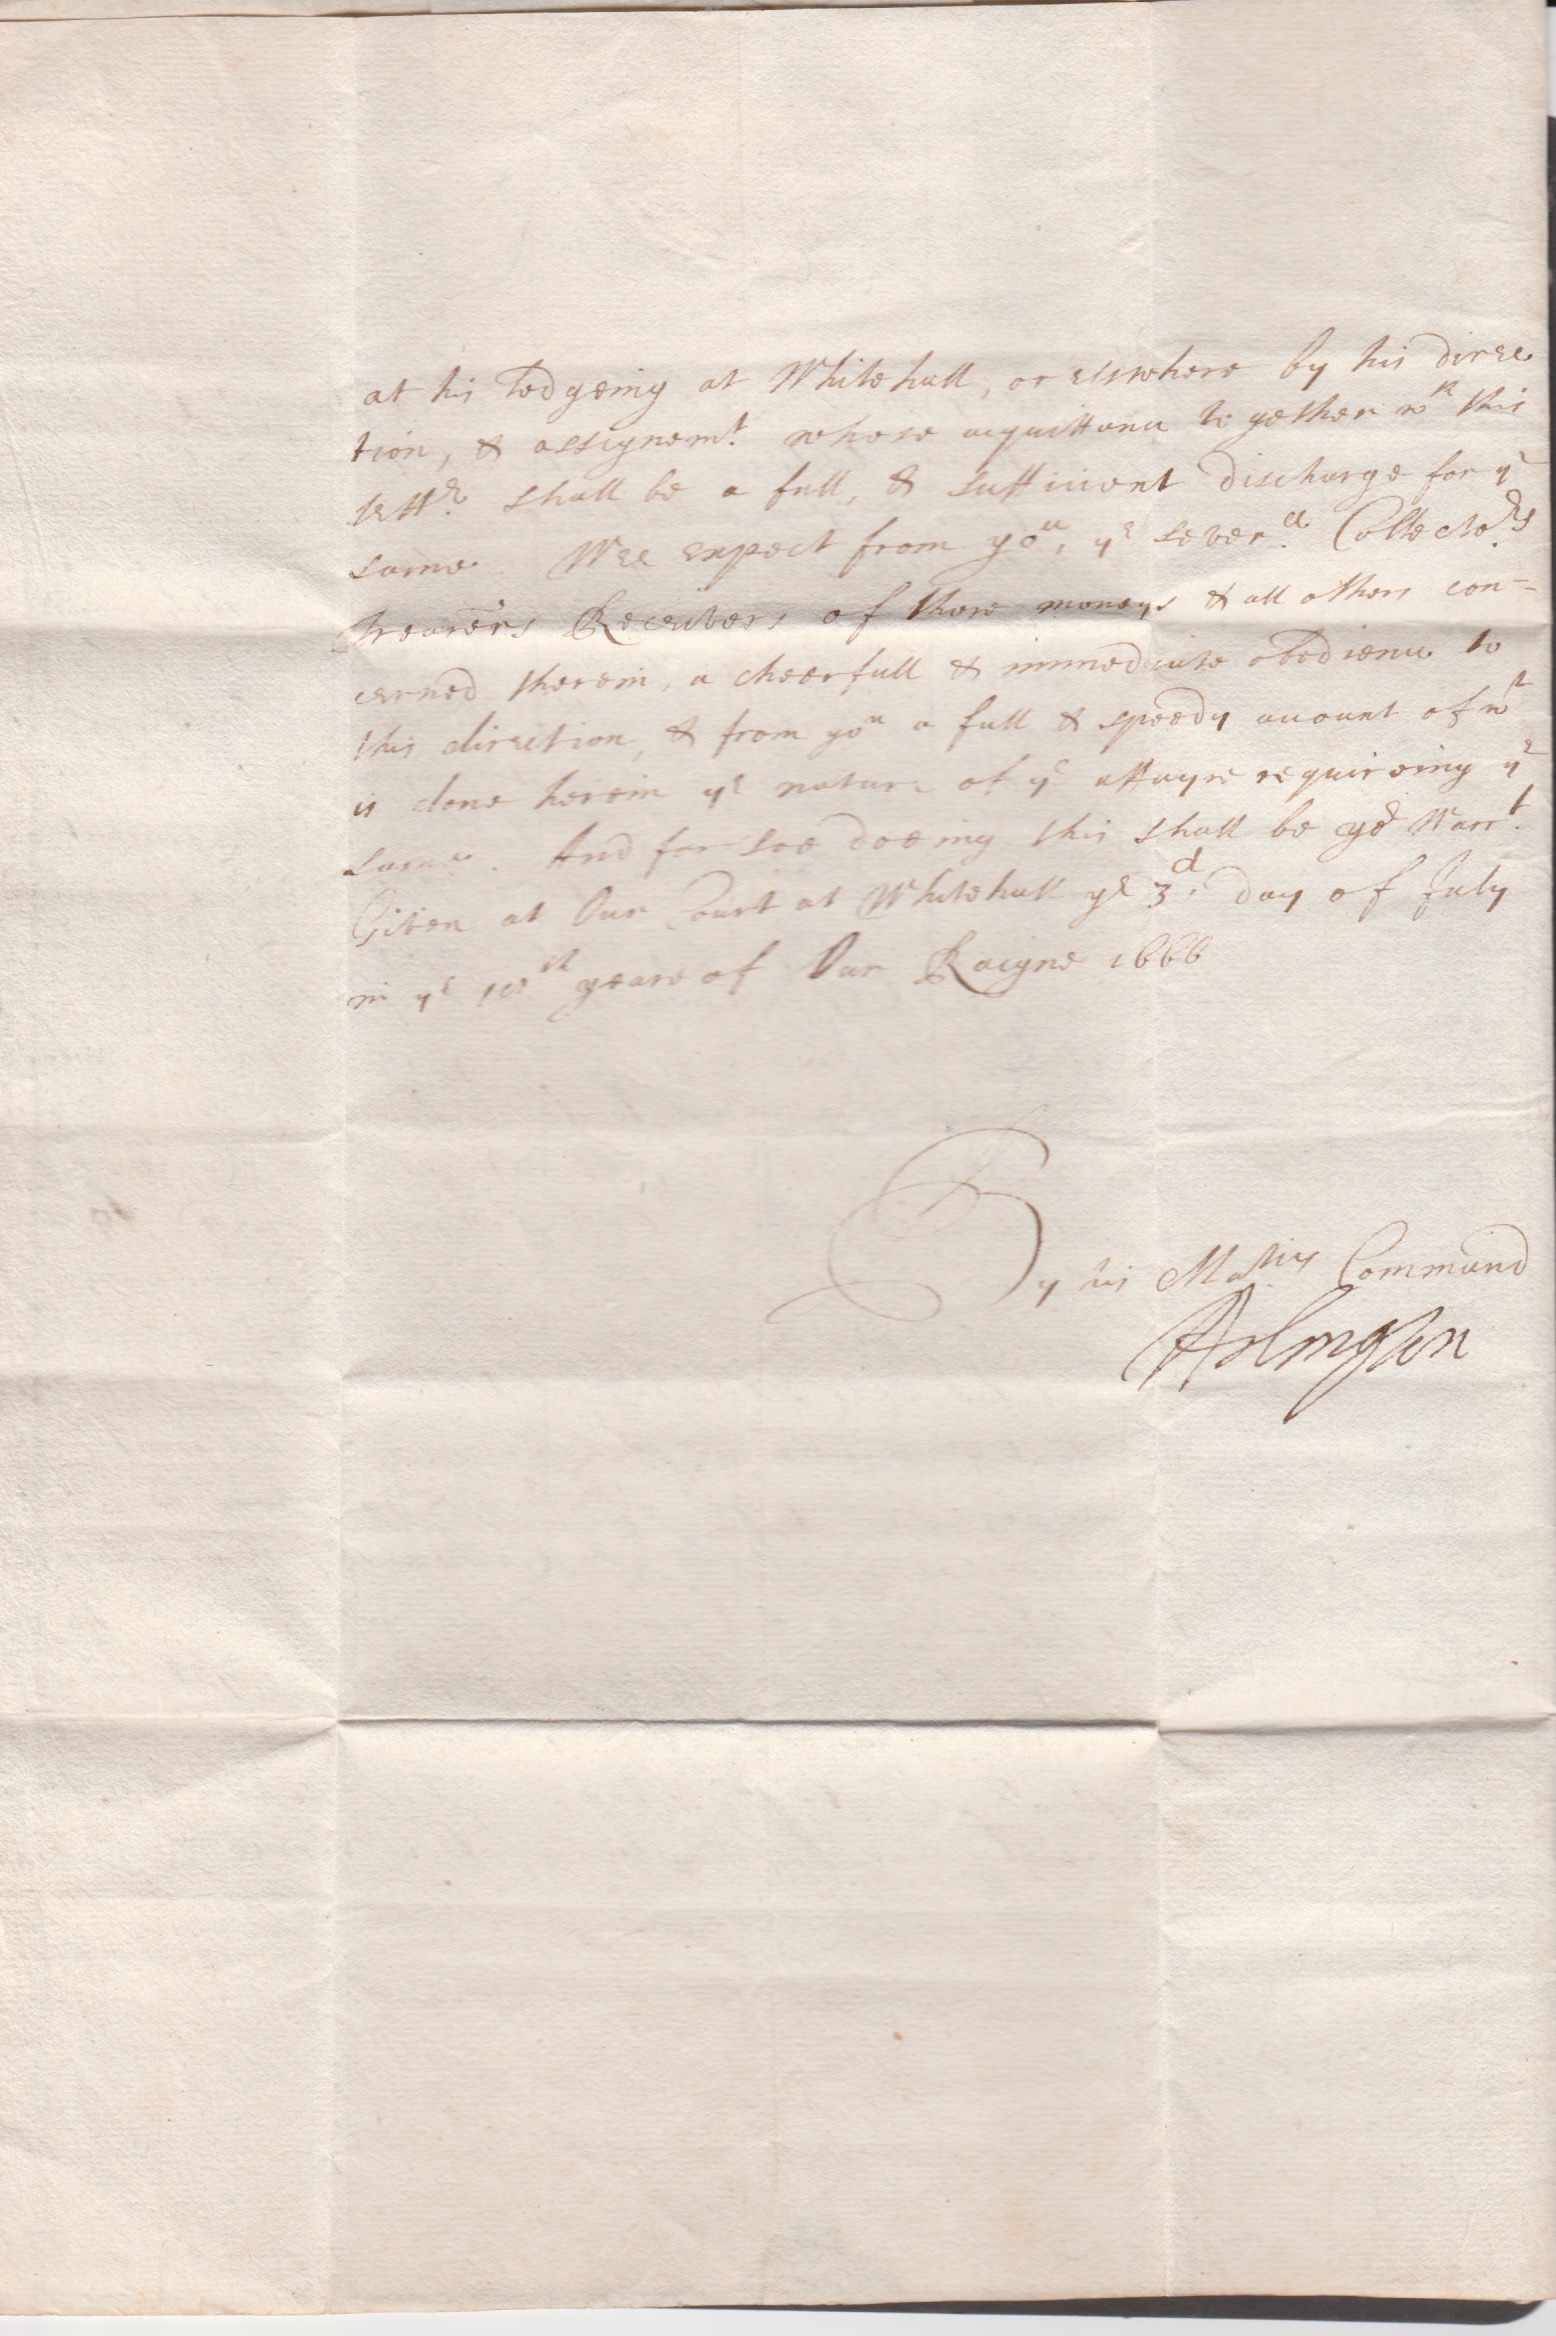 at his Lodgeing at Whitehall, or elswhere by his direc
tion, & assignem.t whose acquittance together w.th this
lett.r shall be a full, & sufficient discharge for y.e
same. Wee expect from yo.u, y.e sever.ll Collecto.rs
Trearers Receivers of those moneys & all others con=
cerned therein, a cheerfull & immediate obedience to
this direction, & from yo.u a full & speedy account of w.t
is done herein y.e nature of y.e affayre requireing y.e
same. And for soe doeing this shall be yo.r Warr.t
Given at Our Court at Whitehall y.e 3.d day of July
in y.e 18.th yeare of Our Raigne 1666
By his Ma.ties Command
Arlington